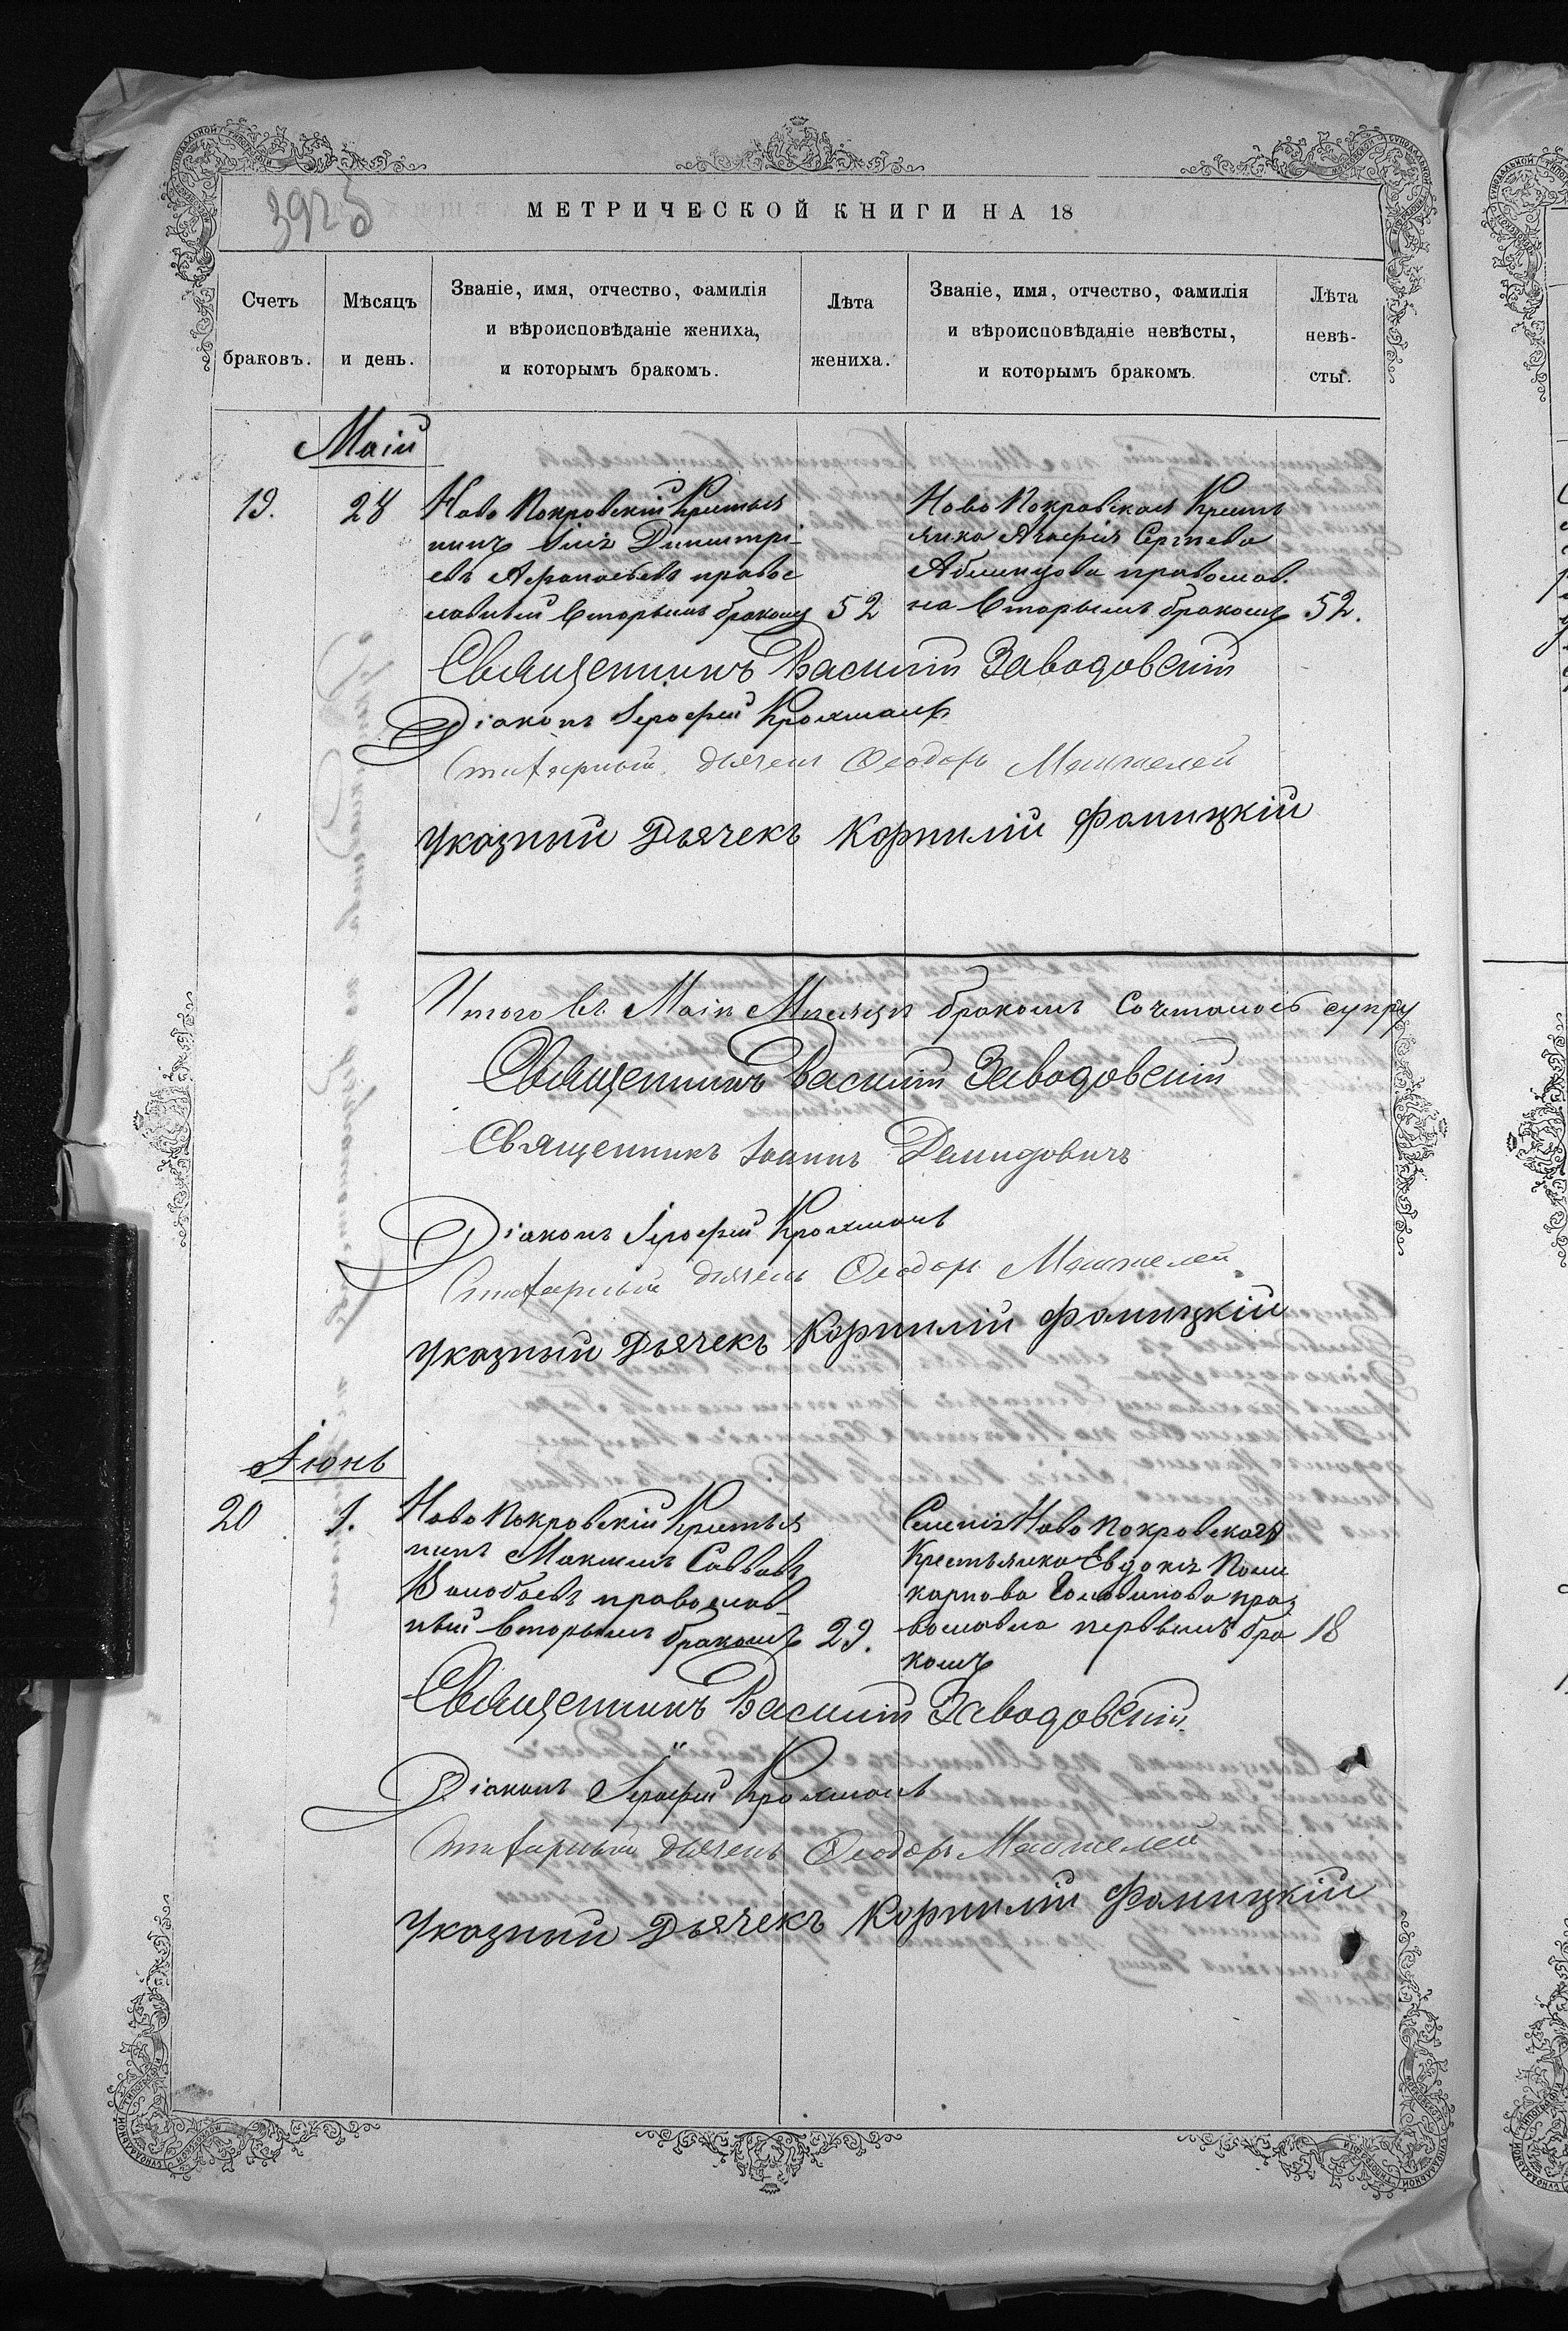 392
МЕТРИЧЕСКОЙ КНИГИ НА 18
Счетъ браковъ.
Мѣсяцъ и день.
Званіе, имя, отчество, фамилія
и вѣроисповѣданіе жениха,
и которымъ бракомъ.
Лѣта жениха.
Званіе, имя, отчество, фамилія
и вѣроисповѣданіе невѣсты,
и которымъ бракомъ.
Лѣта невѣ-
сты.
Маій
19. 28
Ново Покровскій Крестья
нинъ Димитрі-
евъ Афанасьевъ правос
лавный вторымъ бракомъ 52
Ново Покровская Кресть
янка Агафія Сергиева
православ.
на вторымъ бракомъ 52.
Священникъ Василій Заводовскій
Діаконъ Іерофей
дьячекъ Ѳеодоръ
Указный Дьячекъ Корнилій Фаницкій
Итого въ Маіи Месяцѣ бракомъ Сочталось супру
Священникъ Василій Заводовскій
Священникъ Іоаннъ Демидовичъ
Діаконъ Іерофей
дьячекъ Ѳеодоръ
Указный Дьячекъ Корнилій Фаницкій
Іюнь
20 1.
Ново Покровскій Крестья
нинъ Максимъ Саввавъ
православ-
ный вторымъ бракомъ 29.
Селенія Ново Покровскаго
Крестьянка Евдокія Поли
карпова Головинова пра
вославна первымъ бра 18
комъ
Священникъ Василій Заводовскій
Діаконъ Іерофей
дьячекъ Ѳеодоръ
Указный Дьячекъ Корнилій Фаницкій